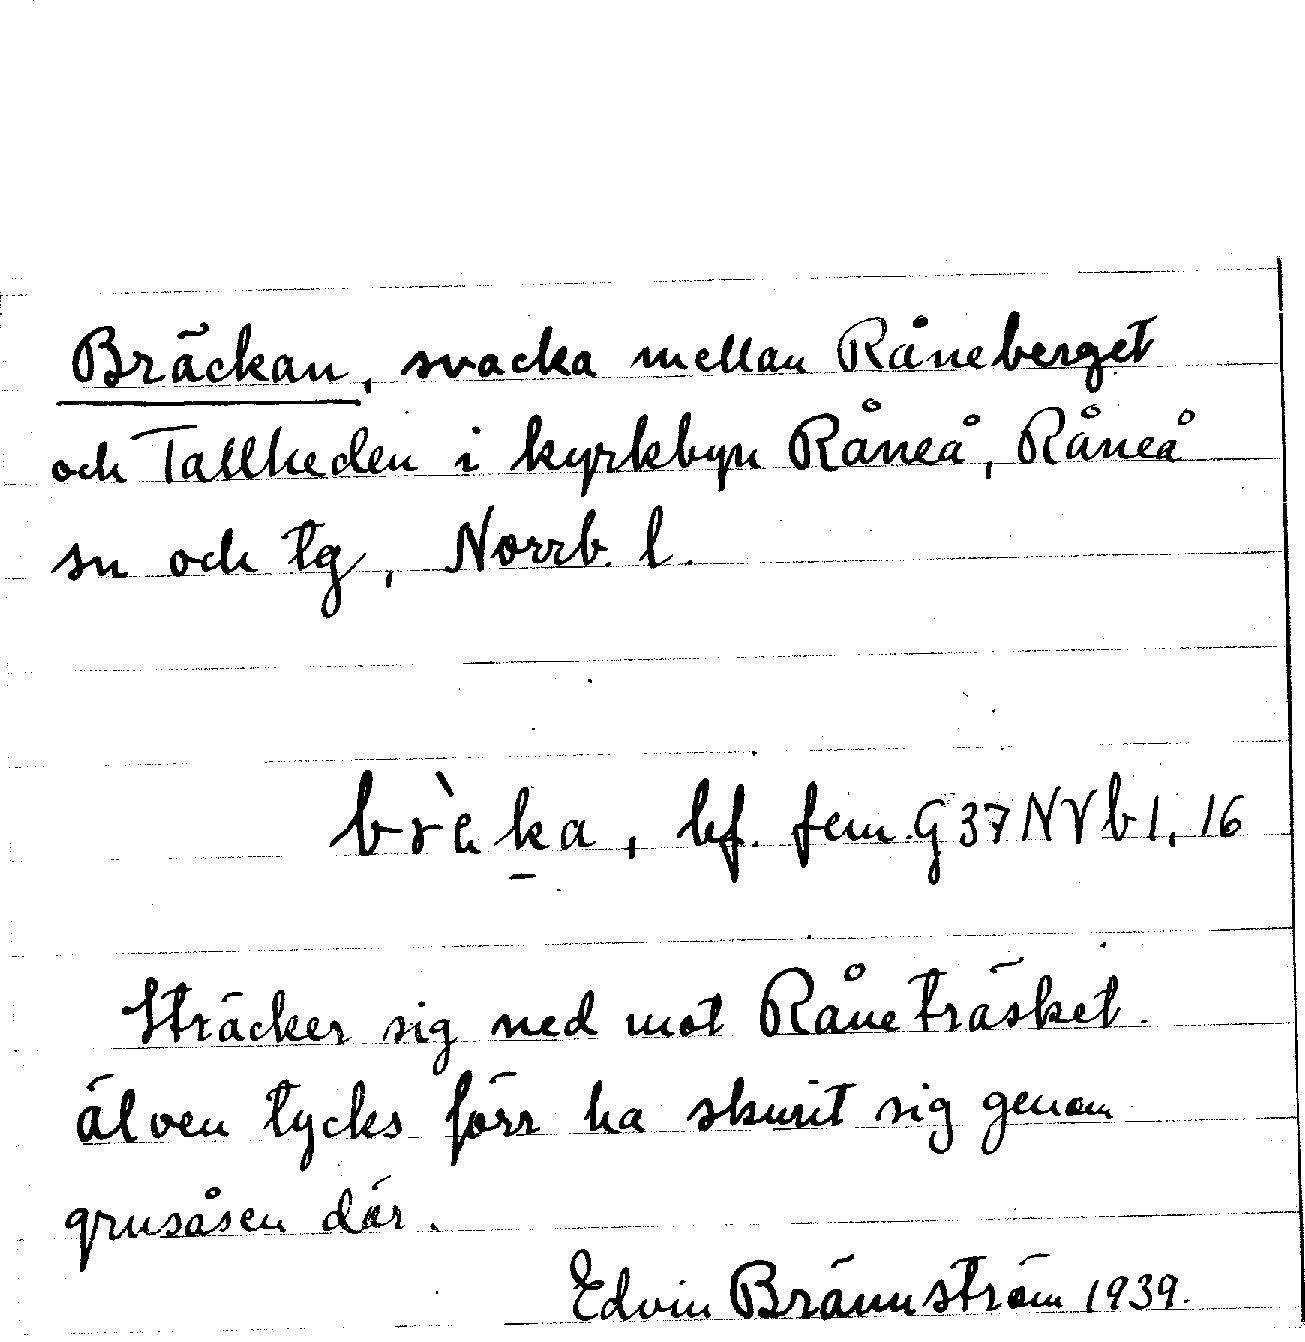 Bräckan, svacka mellan Råneberget
och Tallheden i kyrkbyn Råneå, Råneå
sn och tg, Norrb. l.
brὲka, bf. fem. G37NVb1,16
Sträcker sig ned mot Råneträsket.
älven tycks förr ha skurit sig genom
grusåsen där.
Edvin Brännström 1939.